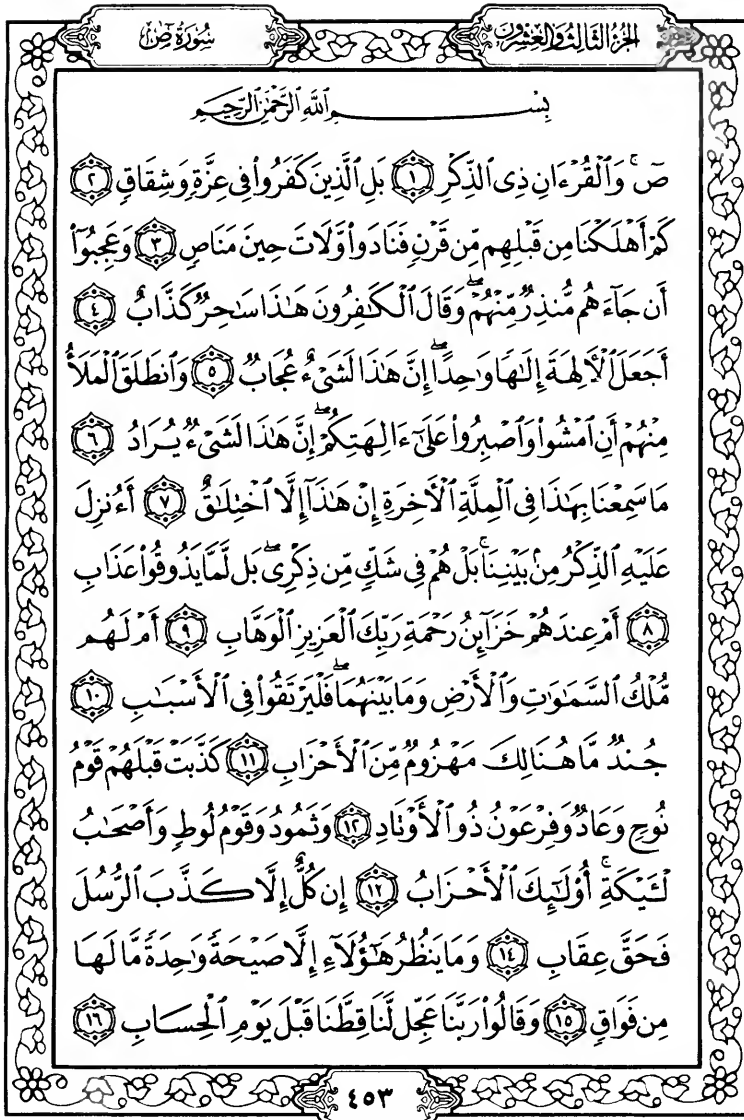 الجزء الثالث والعشرون
سورة ص
بِسْمِ ٱللَّهِ ٱلرَّحْمَٰنِ ٱلرَّحِيمِ
صٓ ۚ وَٱلْقُرْءَانِ ذِى ٱلذِّكْرِ ١ بَلِ ٱلَّذِينَ كَفَرُوا۟ فِى عِزَّةٍ وَشِقَاقٍ ٢
كَمْ أَهْلَكْنَا مِن قَبْلِهِم مِّن قَرْنٍ فَنَادَوا۟ وَّلَاتَ حِينَ مَنَاصٍ ٣ وَعَجِبُوٓا۟
أَن جَآءَهُم مُّنذِرٌ مِّنْهُمْ ۖ وَقَالَ ٱلْكَٰفِرُونَ هَٰذَا سَٰحِرٌ كَذَّابٌ ٤
أَجَعَلَ ٱلْءَالِهَةَ إِلَٰهًا وَٰحِدًا ۖ إِنَّ هَٰذَا لَشَىْءٌ عُجَابٌ ٥ وَٱنطَلَقَ ٱلْمَلَأُ
مِنْهُمْ أَنِ ٱمْشُوا۟ وَٱصْبِرُوا۟ عَلَىٰٓ ءَالِهَتِكُمْ ۖ إِنَّ هَٰذَا لَشَىْءٌ يُرَادُ ٦
مَا سَمِعْنَا بِهَٰذَا فِى ٱلْمِلَّةِ ٱلْءَاخِرَةِ إِنْ هَٰذَآ إِلَّا ٱخْتِلَٰقٌ ٧ أَءُنزِلَ
عَلَيْهِ ٱلذِّكْرُ مِنۢ بَيْنِنَا ۚ بَلْ هُمْ فِى شَكٍّ مِّن ذِكْرِى ۖ بَل لَّمَّا يَذُوقُوا۟ عَذَابِ
٨ أَمْ عِندَهُمْ خَزَآئِنُ رَحْمَةِ رَبِّكَ ٱلْعَزِيزِ ٱلْوَهَّابِ ٩ أَمْ لَهُم
مُّلْكُ ٱلسَّمَٰوَٰتِ وَٱلْأَرْضِ وَمَا بَيْنَهُمَا ۖ فَلْيَرْتَقُوا۟ فِى ٱلْأَسْبَٰبِ ١٠
جُندٌ مَّا هُنَالِكَ مَهْزُومٌ مِّنَ ٱلْأَحْزَابِ ١١ كَذَّبَتْ قَبْلَهُمْ قَوْمُ
نُوحٍ وَعَادٌ وَفِرْعَوْنُ ذُو ٱلْأَوْتَادِ ١٢ وَثَمُودُ وَقَوْمُ لُوطٍ وَأَصْحَٰبُ
لْـَٔيْكَةِ ۚ أُو۟لَٰٓئِكَ ٱلْأَحْزَابُ ١٣ إِن كُلٌّ إِلَّا كَذَّبَ ٱلرُّسُلَ
فَحَقَّ عِقَابِ ١٤ وَمَا يَنظُرُ هَٰٓؤُلَآءِ إِلَّا صَيْحَةً وَٰحِدَةً مَّا لَهَا
مِن فَوَاقٍ ١٥ وَقَالُوا۟ رَبَّنَا عَجِّل لَّنَا قِطَّنَا قَبْلَ يَوْمِ ٱلْحِسَابِ ١٦
٤٥٣